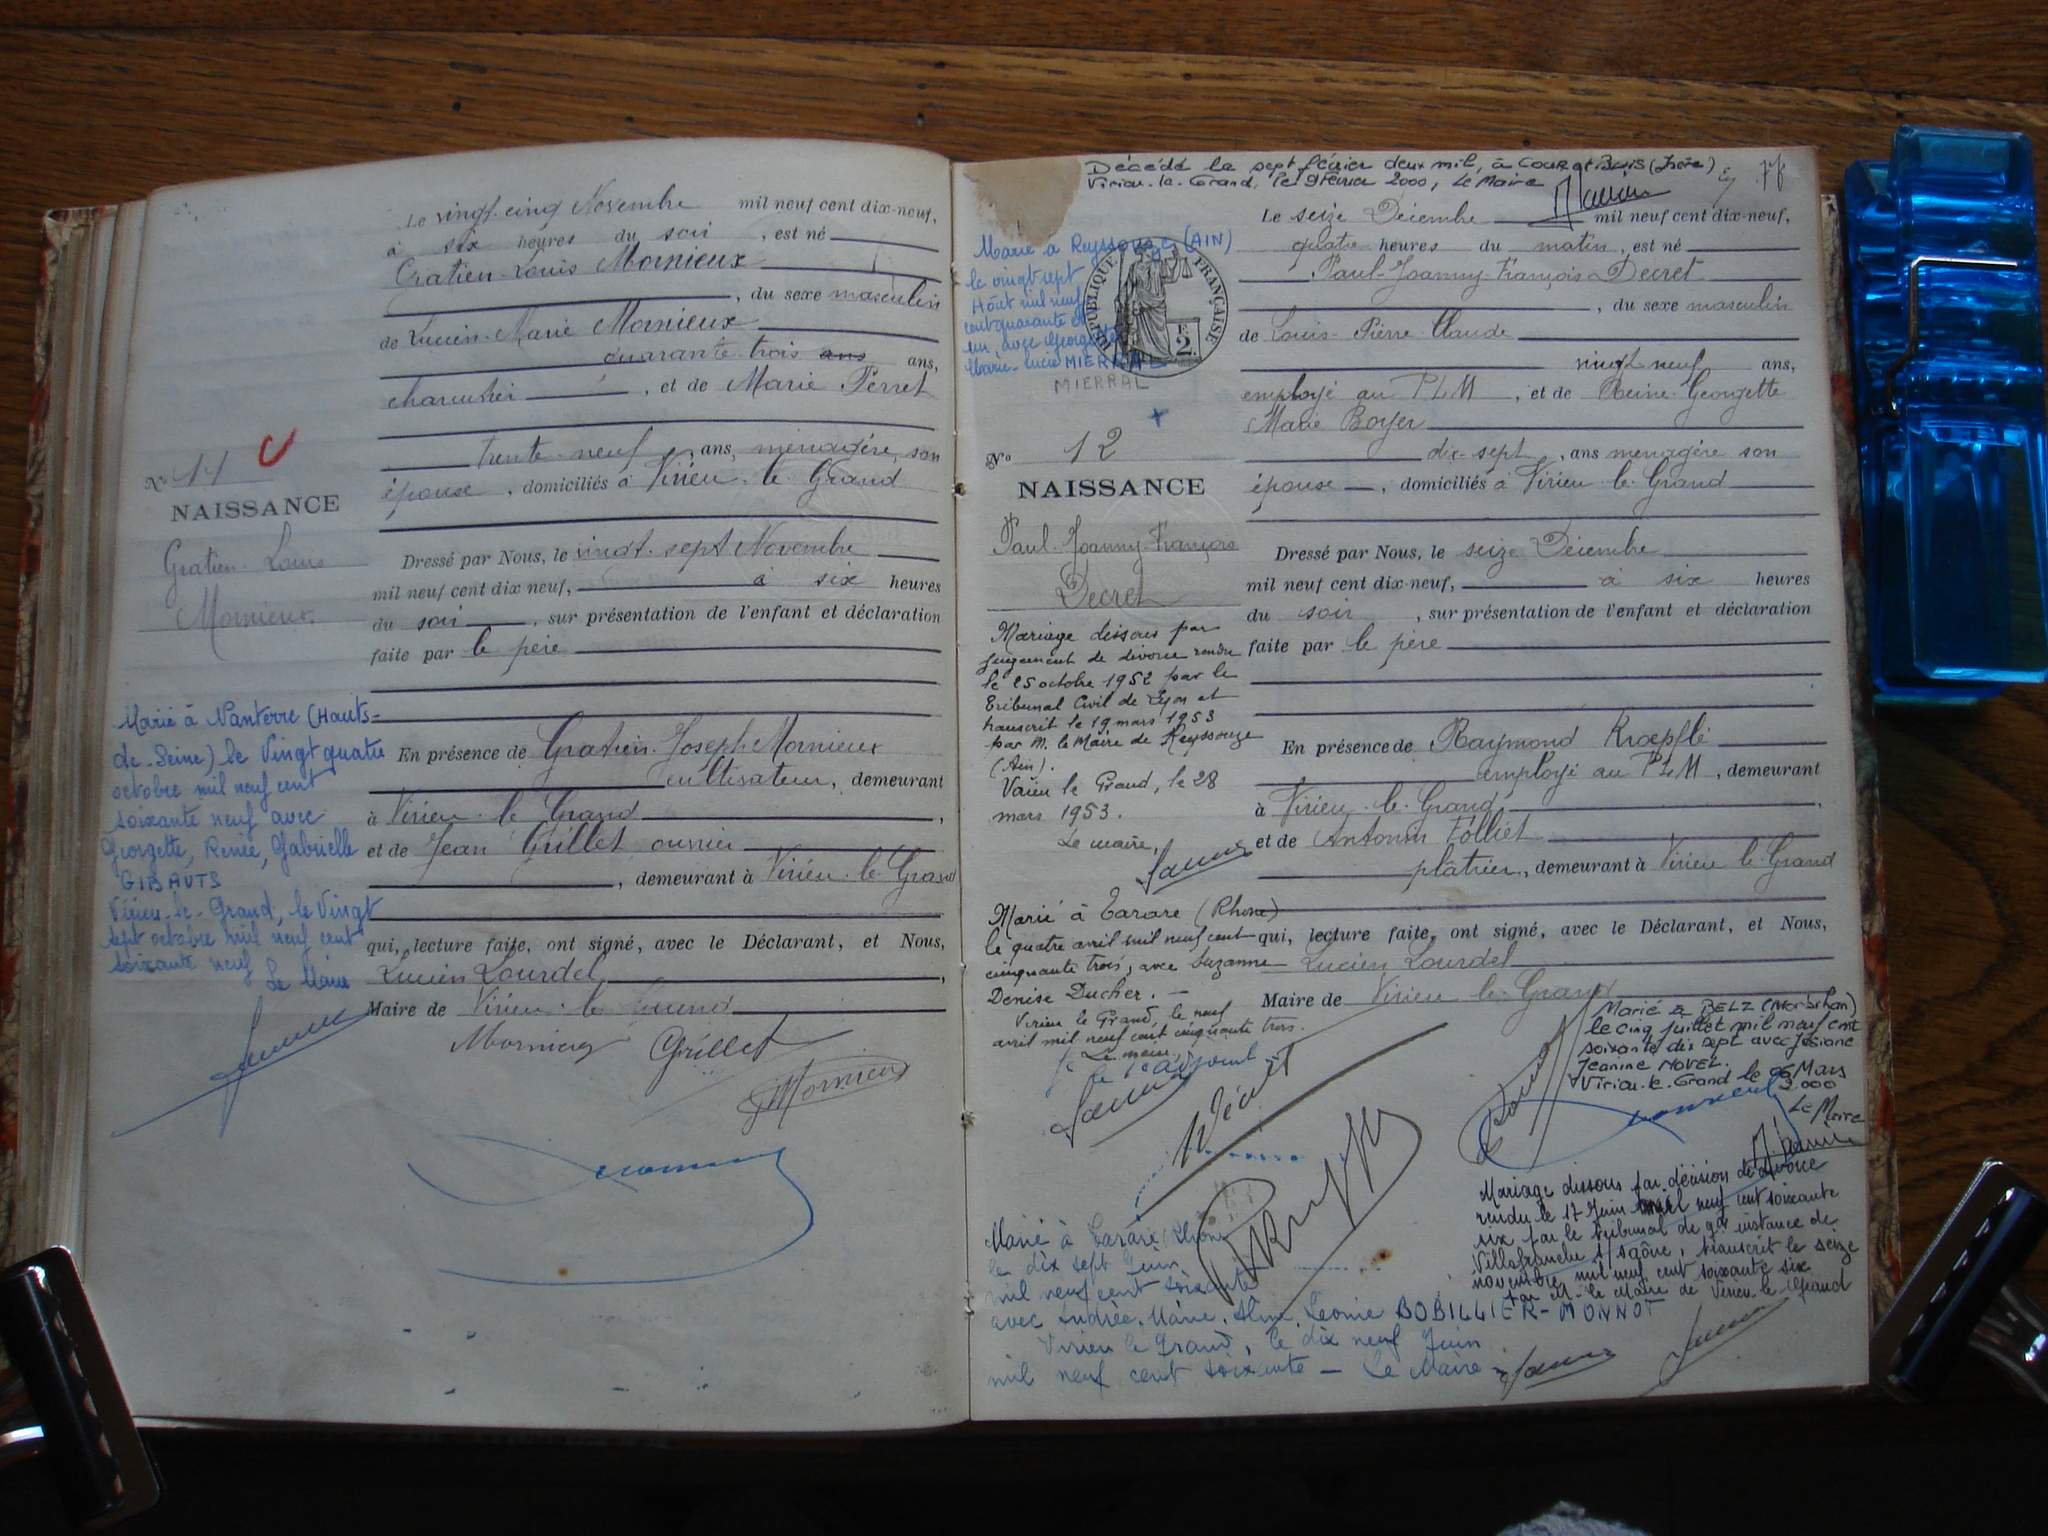 Le vingt-cinq Novembre mil neuf cent dix-neuf,
à six heures du soir, est né
Gratien-Louis Mornieux
, du sexe masculin
de Lucien-Marie Mornieux
quarante-trois ans ans,
charcutier, et de Marie Perret
trente-neuf, ans, ménagère, son
épouse, domiciliés à Virieu-le-Grand
No 11
NAISSANCE
Gratien-Louis
Mornieux
Dressé par Nous, le vingt-sept Novembre
mil neuf cent dix neuf, à six heures
du soir, sur présentation de l'enfant et déclaration
faite par le père
En présence de Gratien-Joseph Mornieux
cultivateur, demeurant
à Virieu-le-Grand,
et de Jean Grillet ouvrier
, demeurant à Virieu-le-Grand
qui, lecture faite, ont signé, avec le Déclarant, et Nous,
Lucien Lourdel,
Maire de Virieu-le-Grand
Mornieux Grillet
Mornieux
Marié à Nanterre (Hauts-
de-Seine) le Vingt quatre
octobre mil neuf cent
soixante neuf avec
Georgette, Renée, Gabrielle
GIBAUTS
Virieu-le-Grand, le Vingt
sept octobre mil neuf cent
soixante neuf
Le Maire
Décédé le sept février deux mil, à COUR et BUIS (Isère)
Virieu-le-Grand, le 9 février 2000, Le Maire
Le seize Décembre mil neuf cent dix-neuf,
quatre heures du matin, est né
Paul-Joanny-François Decret
, du sexe masculin
de Louis-Pierre-Claude
vingt neuf ans,
employé au PLM, et de Reine-Georgette
Marie Boyer
dix-sept, ans ménagère son
épouse, domiciliés à Virieu-le-Grand
Marié à Reyssouze (AIN)
le vingt sept
Août mil neuf
cent quarante et
un, avec Georgette
Marie-Lucie MIERRAL
MIERRAL
RÉPUBLIQUE FRANÇAISE
2
No 12
NAISSANCE
Paul-Joanny-François
Decret
Dressé par Nous, le seize Décembre
mil neuf cent dix-neuf, à six heures
du soir, sur présentation de l'enfant et déclaration
faite par le père
En présence de Raymond Kroepflé
employé au PLM, demeurant
à Virieu-le-Grand,
et de Antonin Folliet
plâtrier, demeurant à Virieu-le-Grand
qui, lecture faite, ont signé, avec le Déclarant, et Nous,
Lucien Lourdel
Maire de Virieu-le-Grand
Mariage dissous par
jugement de divorce rendu
le 25 octobre 1952 par le
Tribunal Civil de Lyon et
transcrit le 19 mars 1953
par M. le Maire de Reyssouze
(Ain).
Virieu le Grand, le 28
mars 1953.
Le maire,
Marié à Tarare (Rhône)
le quatre avril mil neuf cent
cinquante trois, avec Suzanne
Denise Ducher.
Virieu le Grand, le neuf
avril mil neuf cent cinquante trois.
Le maire,
Marié à BELZ (Morbihan)
le cinq juillet mil neuf cent
soixante dix sept avec Josiane
Jeanine NOVEL.
Virieu-le-Grand le 06 Mars
2000
Le Maire
Mariage dissous par décision de divorce
rendu le 17 Juin mil neuf cent soixante
six par le Tribunal de gde instance de
Villefranche s/ Saône, transcrit le seize
novembre mil neuf cent soixante six
par M. le Maire de Virieu-le-Grand
Marié à Tarare (Rhône)
le dix sept Juin
mil neuf cent soixante
avec Andrée, Marie, Aline, Léonie BOBILLIER-MONNOT
Virieu le Grand, le dix neuf Juin
mil neuf cent soixante - Le Maire